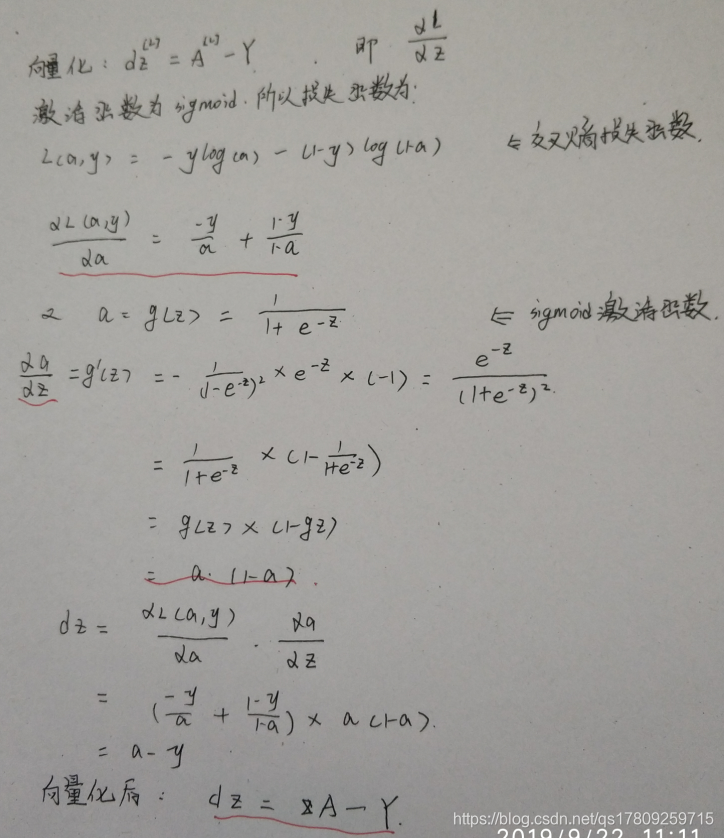 向量化: dz^[L] = A^[L] - Y. 即 ∂L/∂z
激活函数为 sigmoid. 所以损失函数为:
L(a,y) = - y log(a) - (1-y) log(1-a) ⇐ 交叉熵损失函数.
∂L(a,y)/∂a = -y/a + 1-y/1-a
∵ a = g(z) = 1/(1+e^-z) ⇐ sigmoid 激活函数.
∂a/∂z = g'(z) = - 1/(1-e^-z)^2 × e^-z × (-1) = e^-z/(1+e^-z)^2.
= 1/(1+e^-z) × (1- 1/(1+e^-z))
= g(z) × (1-gz)
= a. (1-a).
dz = ∂L(a,y)/∂a · ∂a/∂z
= (-y/a + 1-y/1-a) × a(1-a).
= a-y
向量化后: dz = A-Y.
https://blog.csdn.net/qs17809259715
2019/9/22 11:11